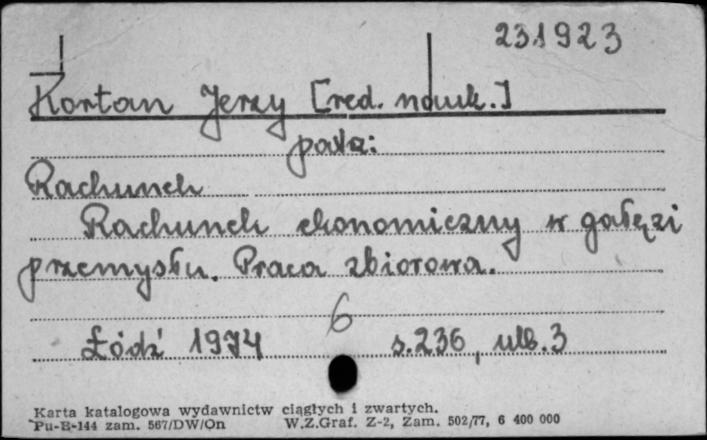 231923
Kortan Jerzy [red. nauk.]
patz:
Rachunek
Rachunek ekonomiczny w gałęzi
przemysłu. Praca zbiorowa.
6
Łódź 1974 s.236, ulb.3
Karta katalogowa wydawnictw ciągłych i zwartych.
Pu-B-144 zam. 567/DW/On W.Z.Graf. Z-2, Zam. 502/77, 6 400 000